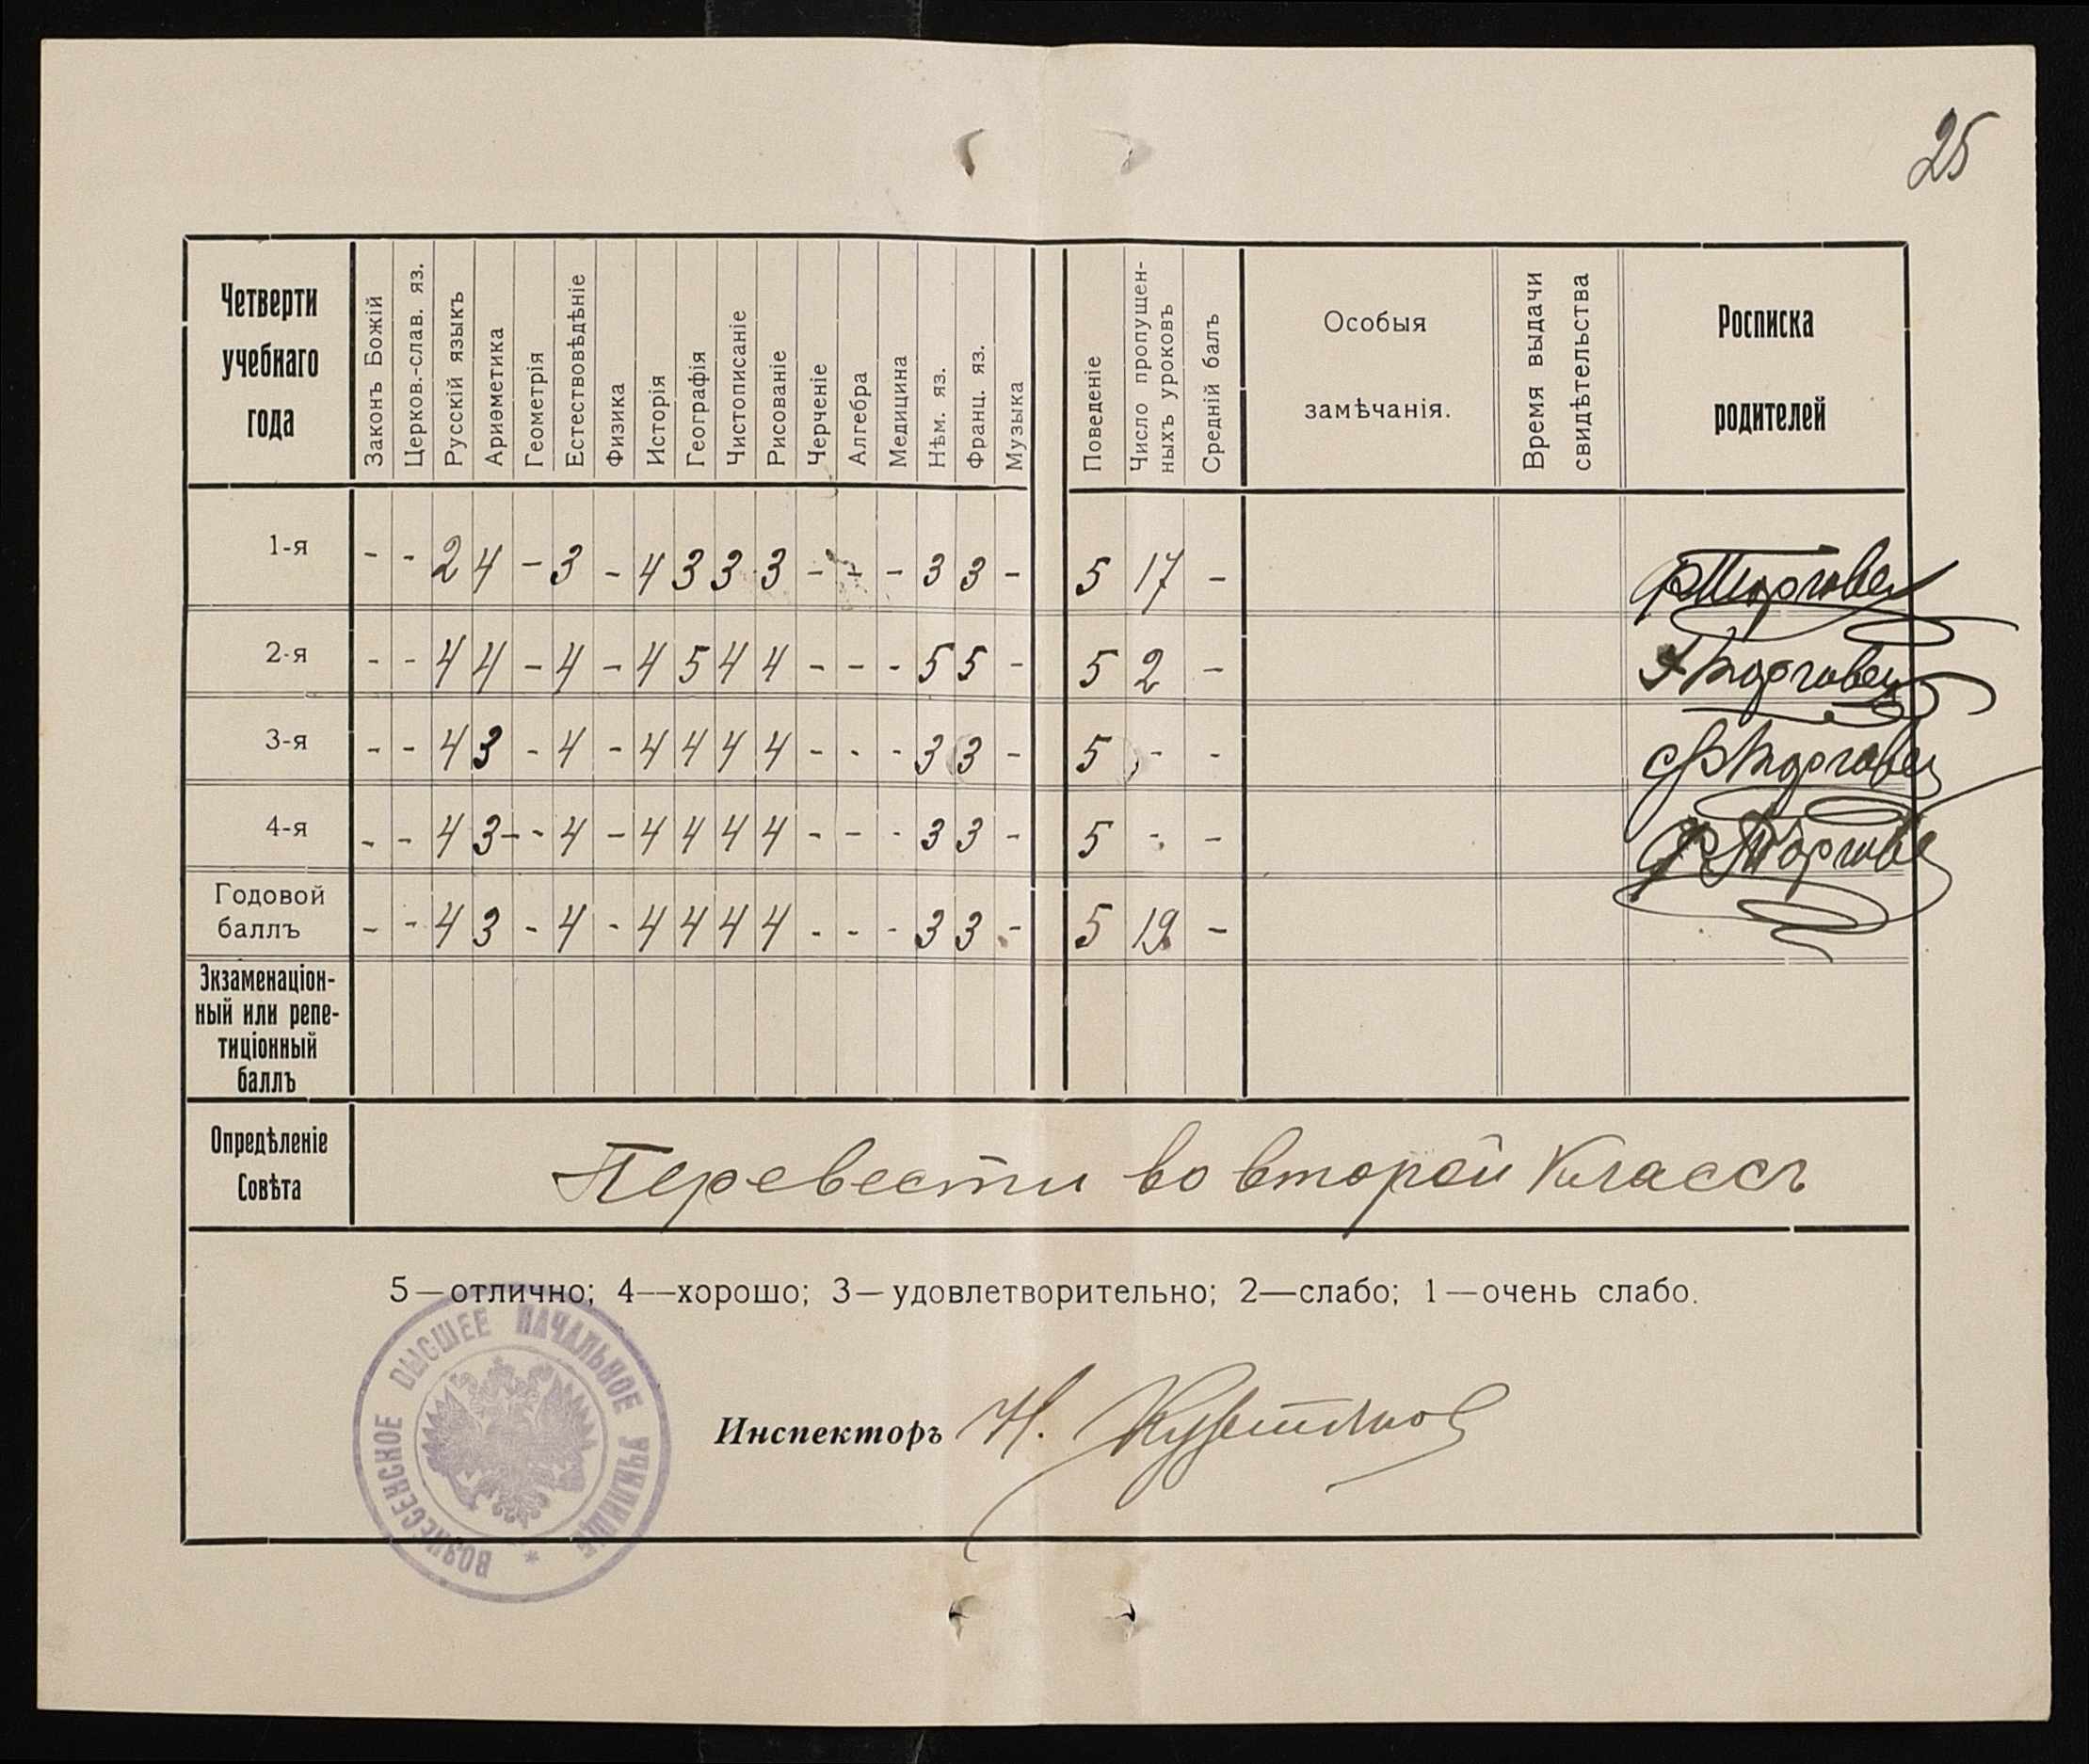 25
Четверти учебнаго года
Законъ Божій
Церков.-слав. яз.
Русскій языкъ
Ариѳметика
Геометрія
Естествовѣдѣніе
Физика
Исторія
Географія
Чистописаніе
Рисованіе
Черченіе
Алгебра
Медицина
Нѣм. яз.
Франц. яз.
Музыка
Поведеніе
Число пропущен-
ныхъ уроковъ
Средній балъ
Особыя
замѣчанія.
Время выдачи
свидѣтельства
Росписка
родителей
1-я - - 2 4 - 3 - 4 3 3 3 - - - 3 3 - 5 17 -
2-я - - 4 4 - 4 - 4 5 4 4 - - - 5 5 - 5 2 -
3-я - - 4 3 - 4 - 4 4 4 4 - - - 3 3 - 5 - -
4-я - - 4 3 - - 4 - 4 4 4 4 - - - 3 3 - 5 - -
Годовой
баллъ - - 4 3 - 4 - 4 4 4 4 - - - 3 3 - 5 19 -
Экзаменаціон-
ный или репе-
тиціонный
баллъ
Опредѣленіе
Совѣта
Перевести во второй классъ
5—отлично; 4—хорошо; 3—удовлетворительно; 2—слабо; 1—очень слабо.
ВОЗНЕСЕНСКОЕ ВЫСШЕЕ НАЧАЛЬНОЕ УЧИЛИЩЕ *
Инспекторъ Н.